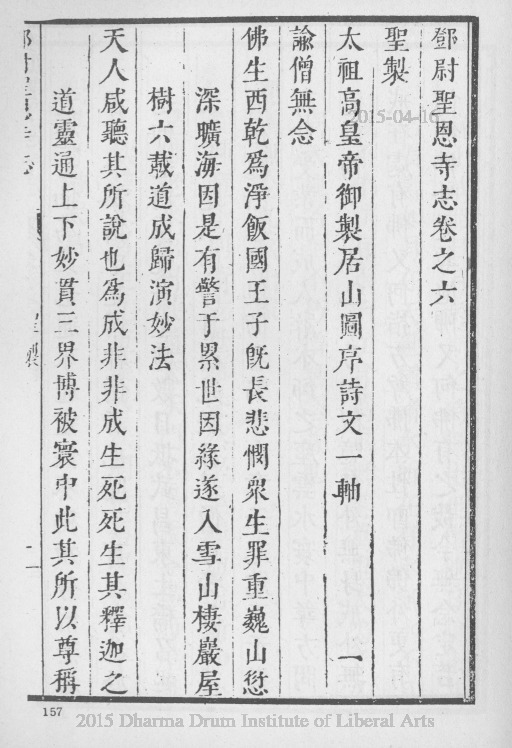 鄧尉聖恩寺志卷之六
聖製
太祖高皇帝御製居山圖序詩文一軸 一
諭僧無念
佛生西乾爲淨飯國王子既長悲憫衆生罪重巍山愆
深曠海因是有警于累世因緣遂入雪山棲巖屋
樹六載道成歸演妙法
天人咸聽其所說也爲成非非成生死死生其釋迦之
道靈通上下妙貫三界博被寰中此其所以尊稱
157
2015-04-16
2015 Dharma Drum Institute of Liberal Arts